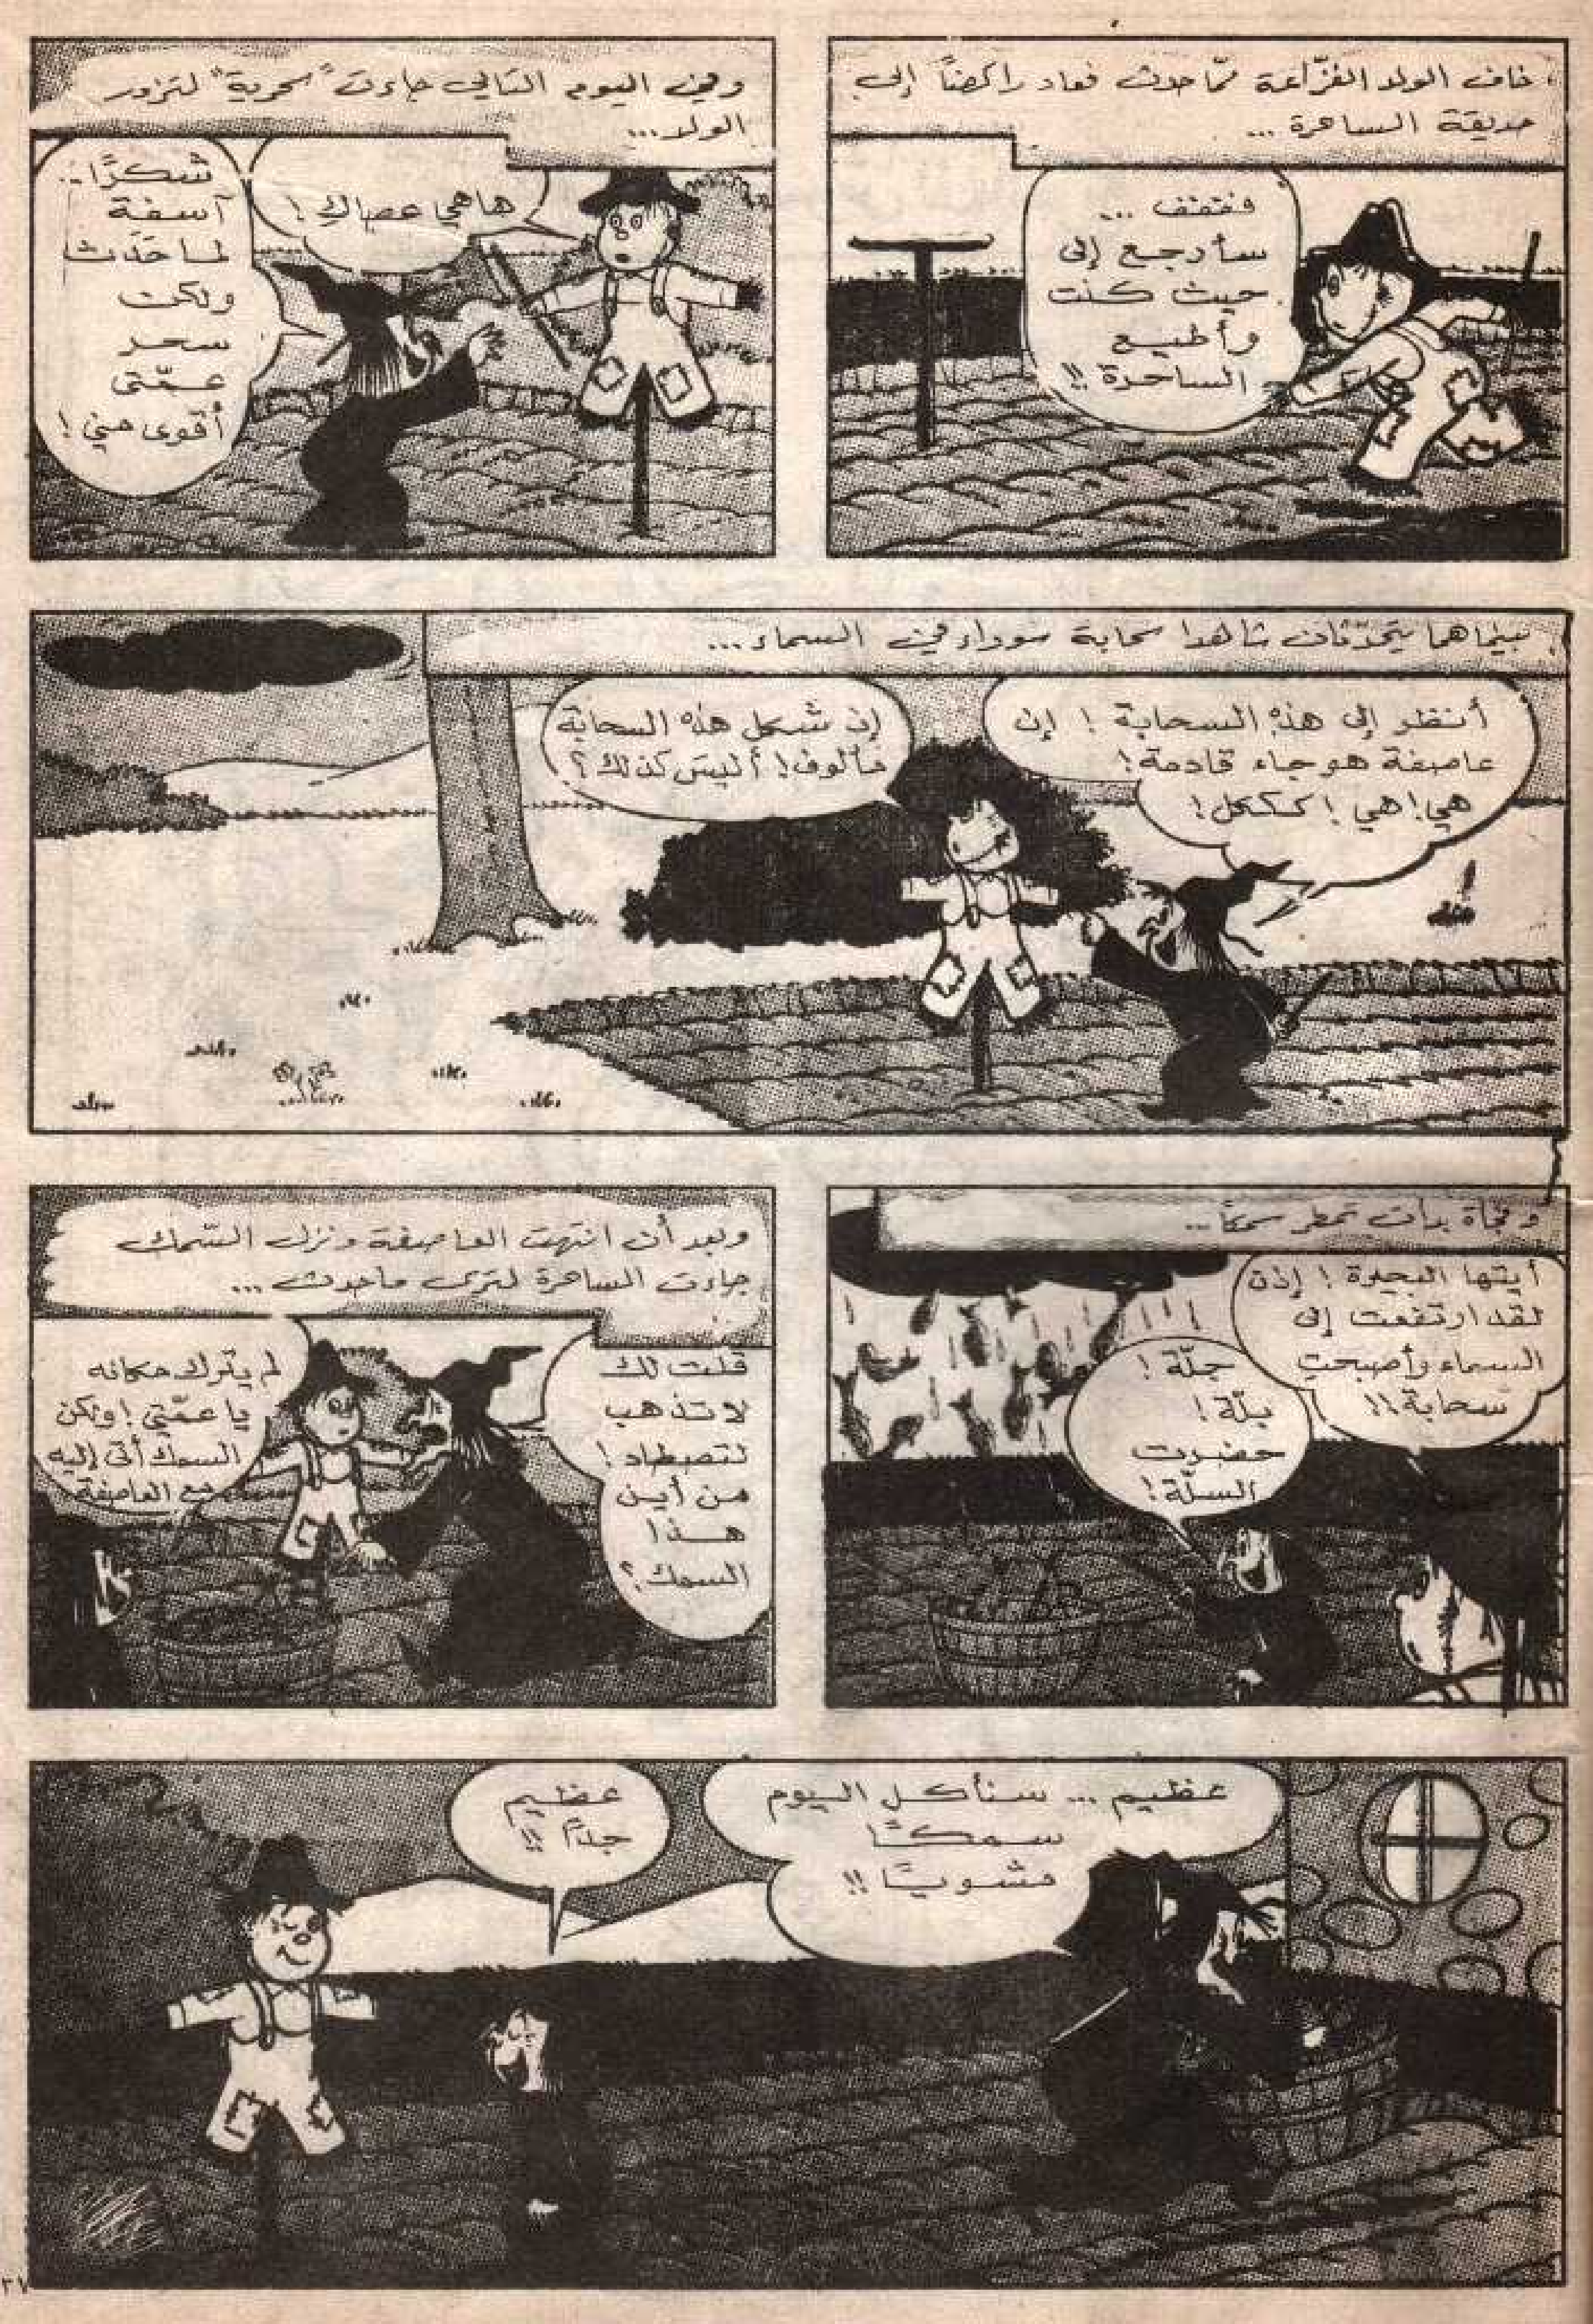 خاف الولد الفزّاعة ممّا حدث فعاد راكضاً إلى
حديقة الساحرة ...
ففففف ...
سأرجع إلى
حيث كنت
وأطيع
الساحرة !!
وفي اليوم التالي جاءت "سحرية" لتزور
الولد...
ها هي عصاك !
شكرًا..
آسفة
لما حَدَث
ولكن
سحر
عمّتي
أقوى مني !
بينما هما يتحدّثان شاهدا سحابة سوداء في السماء...
أنظر إلى هذه السحابة ! إن
عاصفة هوجاء قادمة !
هي ! هي ! كككل !
إن شكل هذه السحابة
مألوف ! أليس كذلك ؟
وفجأة بدأت تمطر سمكاً..
أيتها البحيرة ! إذن
لقد ارتفعت إلى
السماء وأصبحت
سحابة !!
جلّة !
بلّة !
حضرت
السلّة !
وبعد أن انتهت العاصفة ونزل السّمك
جاءت الساحرة لترى ماحدث ...
قلت لك
لا تذهب
لتصطاد !
من أين
هذا
السمك ؟
لم يترك مكانه
يا عمّتي ! ولكن
السمك أتى إليه
مع العاصفة
عظيم ... سنأكل اليوم
سمكًا
مشويًا !!
عظيم
جداً !!
٣٧